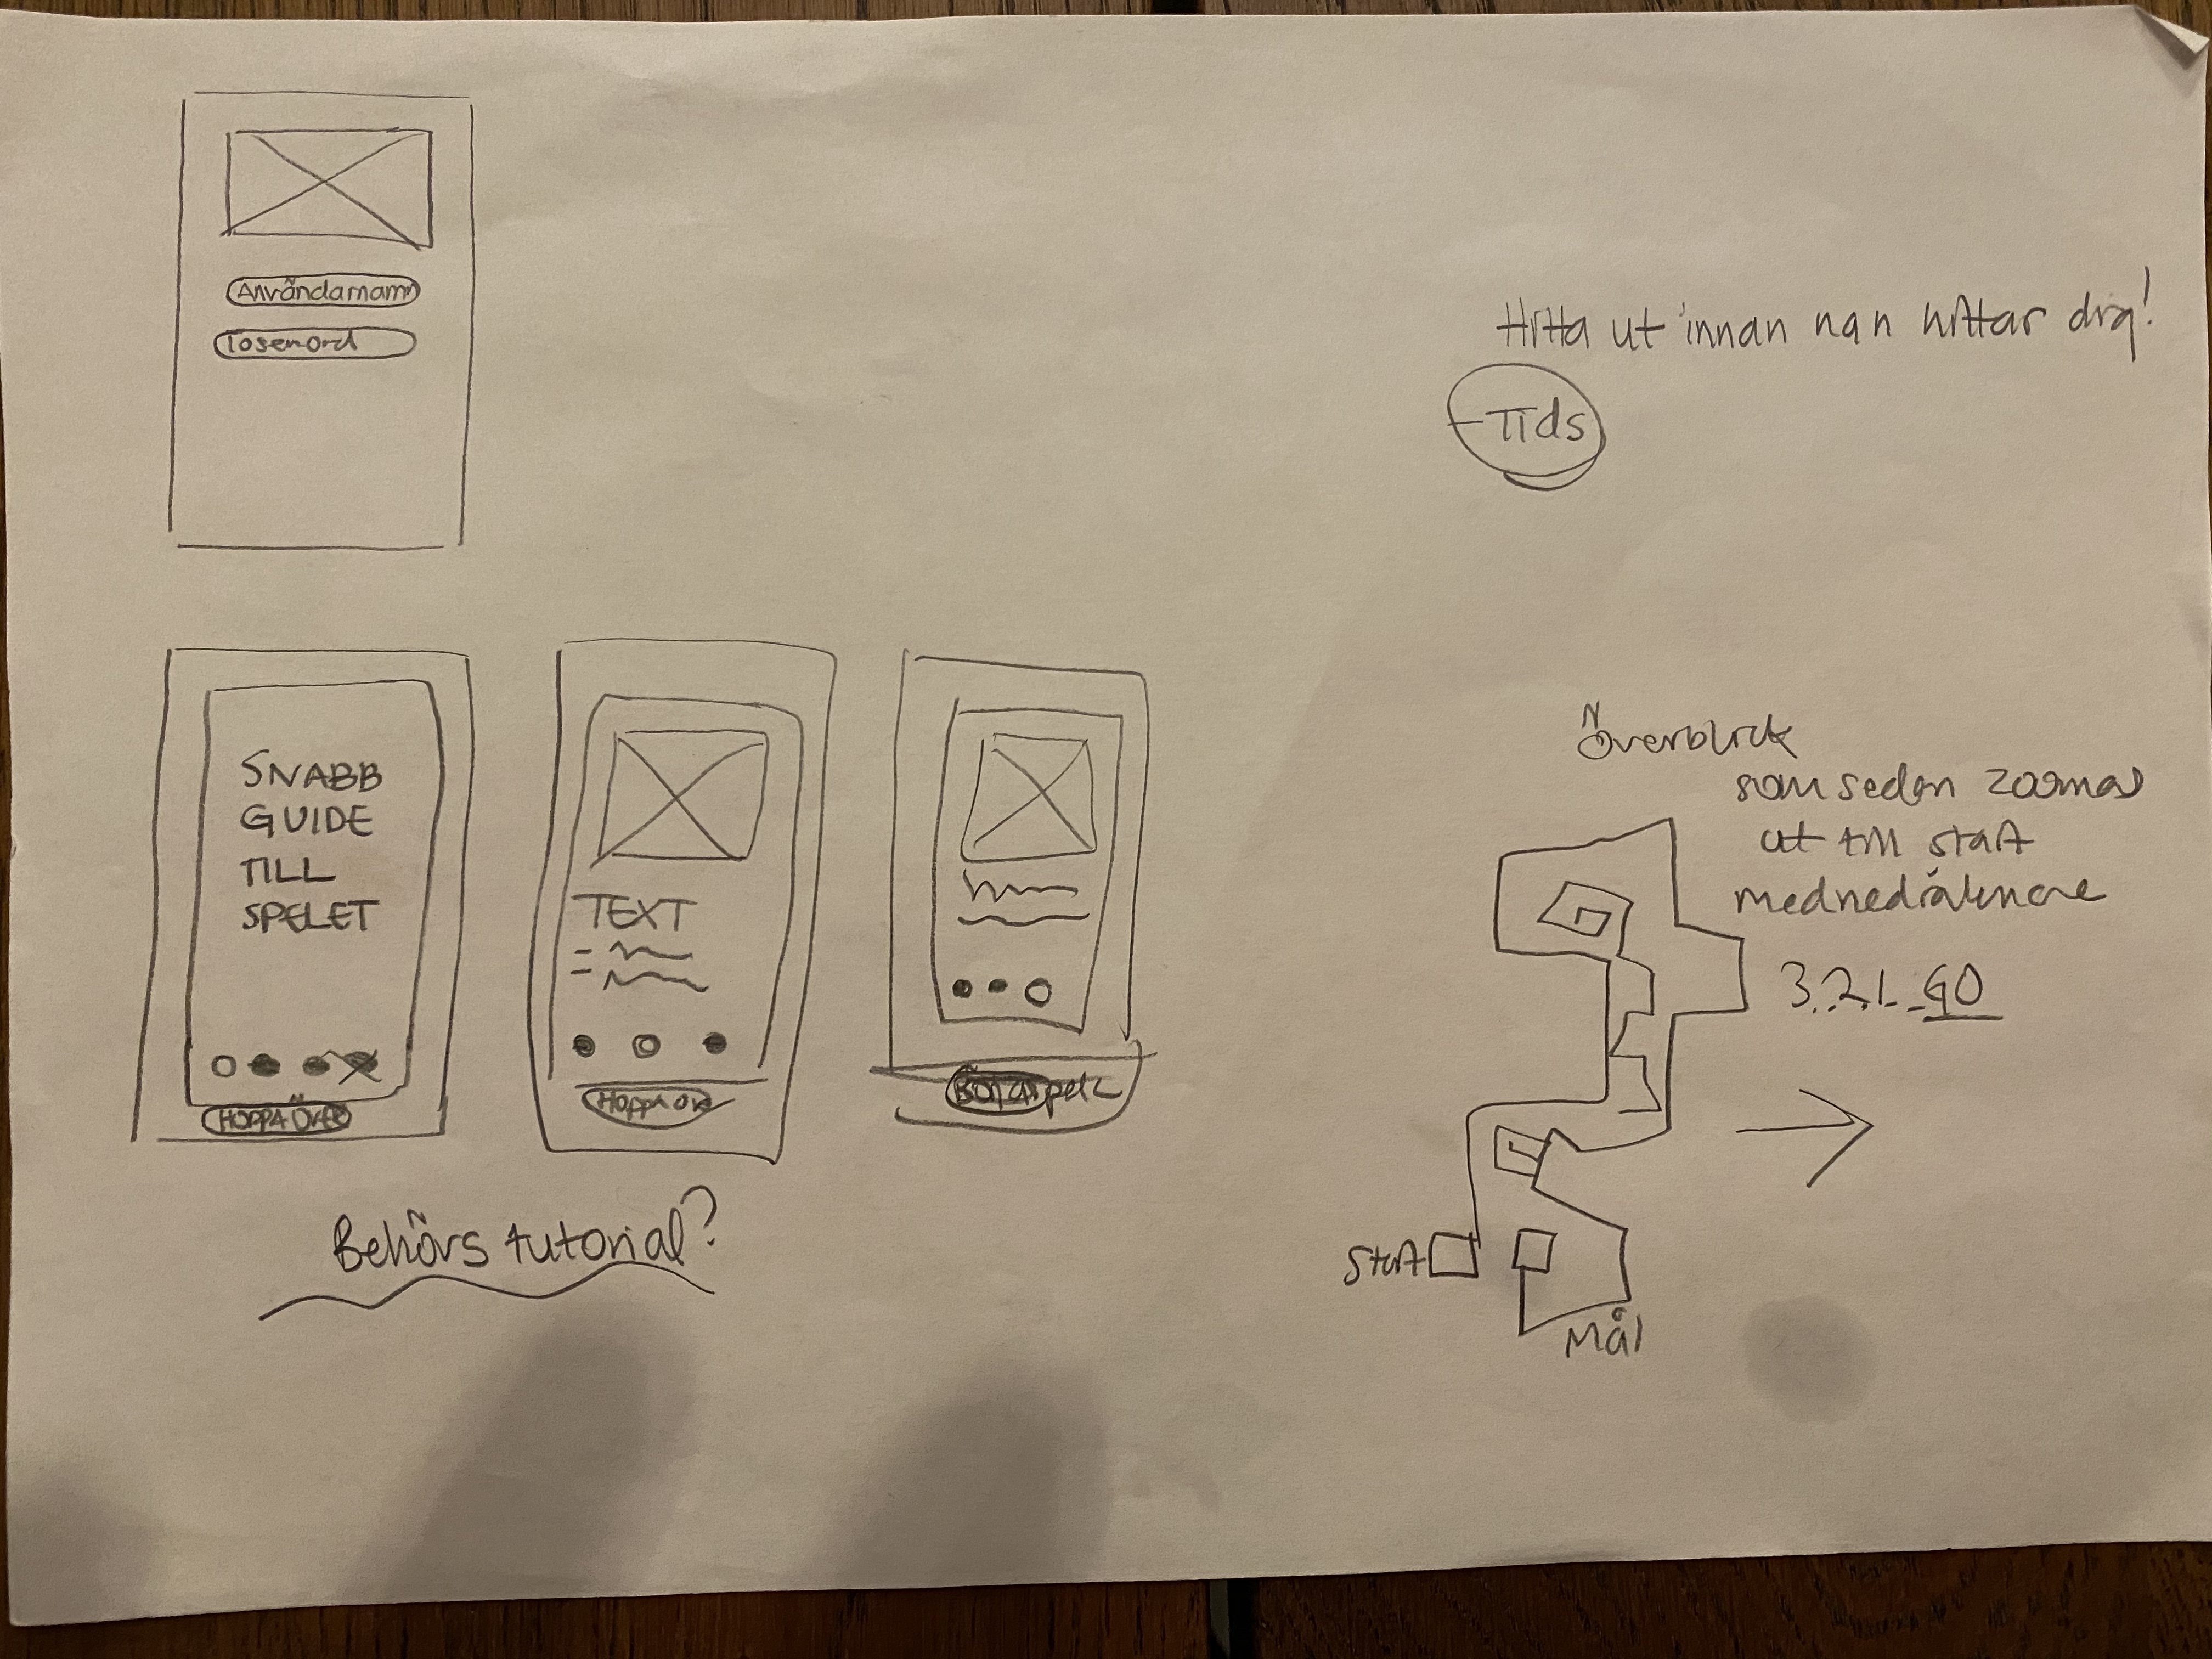 Användarnamn
Lösenord
Hitta ut innan nån hittar dig!
-Tids
SNABB
GUIDE
TILL
SPELET
HOPPA ÖVER
TEXT
Hoppa över
Behövs tutorial?
Överblick
som sedan zoomas
ut till start
med nedräknare
3.2.1-GO
Start
Mål